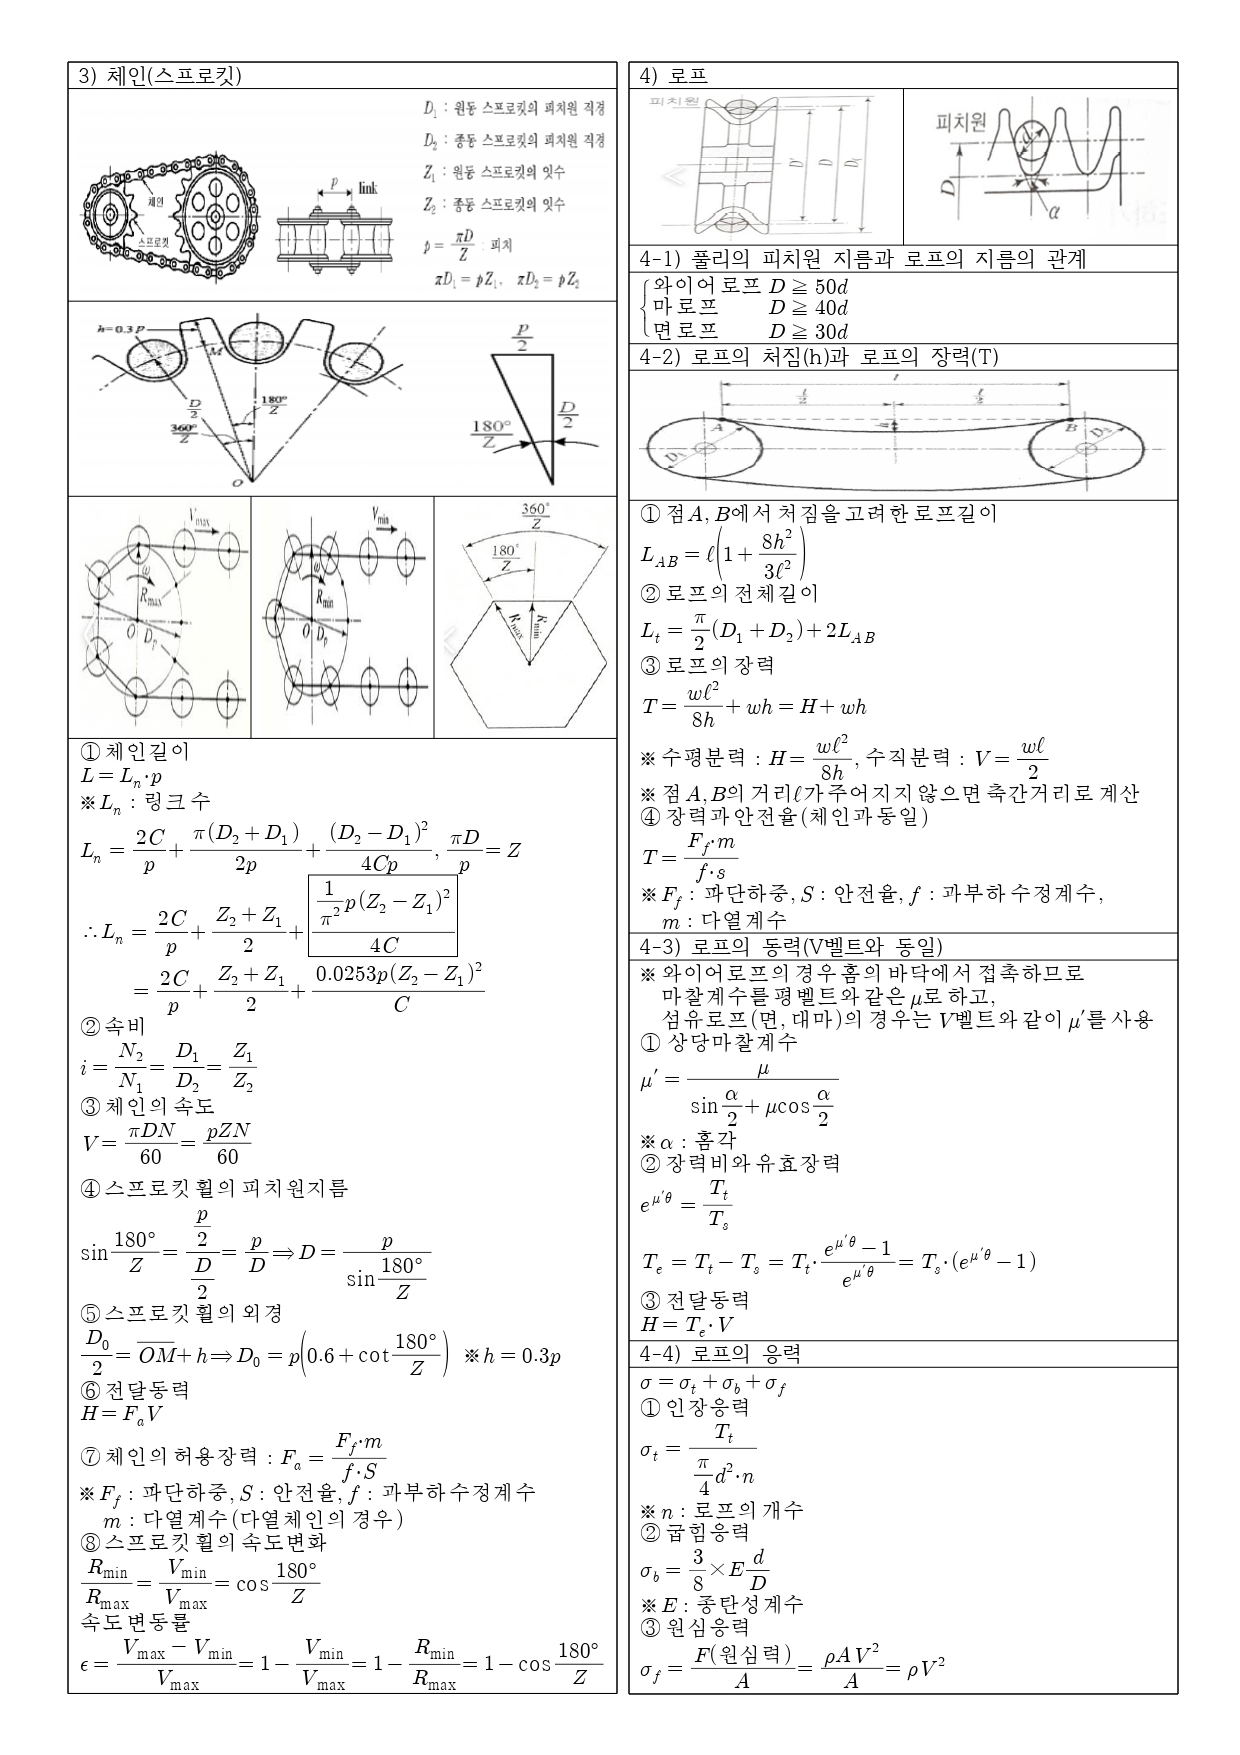 3) 체인(스프로킷)
D₁ : 원동 스프로킷의 피치원 직경
D₂ : 종동 스프로킷의 피치원 직경
Z₁ : 원동 스프로킷의 잇수
Z₂ : 종동 스프로킷의 잇수
p = πD/Z : 피치
πD₁ = pZ₁, πD₂ = pZ₂
체인
스프로킷
p link
h=0.3p
M
D/2
180°/Z
360°/Z
O
p/2
D/2
180°/Z
V_max
ω
R_max
O D_p
V_min
ω
R_min
O D_p
360°/Z
180°/Z
R_max R_min
① 체인길이
L = L_n·p
※ L_n : 링크 수
L_n = 2C/p + π(D₂+D₁)/2p + (D₂−D₁)²/4Cp, πD/p = Z
∴ L_n = 2C/p + (Z₂+Z₁)/2 + (1/π²)p(Z₂−Z₁)²/4C
= 2C/p + (Z₂+Z₁)/2 + 0.0253p(Z₂−Z₁)²/C
② 속비
i = N₂/N₁ = D₁/D₂ = Z₁/Z₂
③ 체인의 속도
V = πDN/60 = pZN/60
④ 스프로킷 휠의 피치원지름
sin 180°/Z = (p/2)/(D/2) = p/D ⇒ D = p/(sin 180°/Z)
⑤ 스프로킷 휠의 외경
D₀/2 = OM + h ⇒ D₀ = p(0.6 + cot 180°/Z) ※ h = 0.3p
⑥ 전달동력
H = F_a V
⑦ 체인의 허용장력 : F_a = F_f·m/f·S
※ F_f : 파단하중, S : 안전율, f : 과부하 수정계수
m : 다열계수(다열체인의 경우)
⑧ 스프로킷 휠의 속도변화
R_min/R_max = V_min/V_max = cos 180°/Z
속도변동률
ϵ = (V_max − V_min)/V_max = 1 − V_min/V_max = 1 − R_min/R_max = 1 − cos 180°/Z
4) 로프
피치원
D' D
피치원
d
D
α
4-1) 풀리의 피치원 지름과 로프의 지름의 관계
와이어로프 D ≧ 50d
마로프 D ≧ 40d
면로프 D ≧ 30d
4-2) 로프의 처짐(h)과 로프의 장력(T)
l
l/2 l/2
A h B
D₁ D₂
① 점 A, B에서 처짐을 고려한 로프길이
L_AB = ℓ(1 + 8h²/3ℓ²)
② 로프의 전체길이
L_t = π/2(D₁+D₂)+2L_AB
③ 로프의 장력
T = wℓ²/8h + wh = H + wh
※ 수평분력 : H = wℓ²/8h, 수직분력 : V = wℓ/2
※ 점 A, B의 거리ℓ가 주어지지 않으면 축간거리로 계산
④ 장력과 안전율(체인과 동일)
T = F_f·m/f·s
※ F_f : 파단하중, S : 안전율, f : 과부하 수정계수,
m : 다열계수
4-3) 로프의 동력(V벨트와 동일)
※ 와이어로프의 경우 홈의 바닥에서 접촉하므로
마찰계수를 평벨트와 같은 μ로 하고,
섬유로프(면, 대마)의 경우는 V벨트와 같이 μ′를 사용
① 상당마찰계수
μ′ = μ/(sin α/2 + μcos α/2)
※ α : 홈각
② 장력비와 유효장력
e^μ′θ = T_t/T_s
T_e = T_t − T_s = T_t·(e^μ′θ − 1)/e^μ′θ = T_s·(e^μ′θ − 1)
③ 전달동력
H = T_e·V
4-4) 로프의 응력
σ = σ_t + σ_b + σ_f
① 인장응력
σ_t = T_t/(π/4 d²·n)
※ n : 로프의 개수
② 굽힘응력
σ_b = 3/8 × E d/D
※ E : 종탄성계수
③ 원심응력
σ_f = F(원심력)/A = ρAV²/A = ρV²